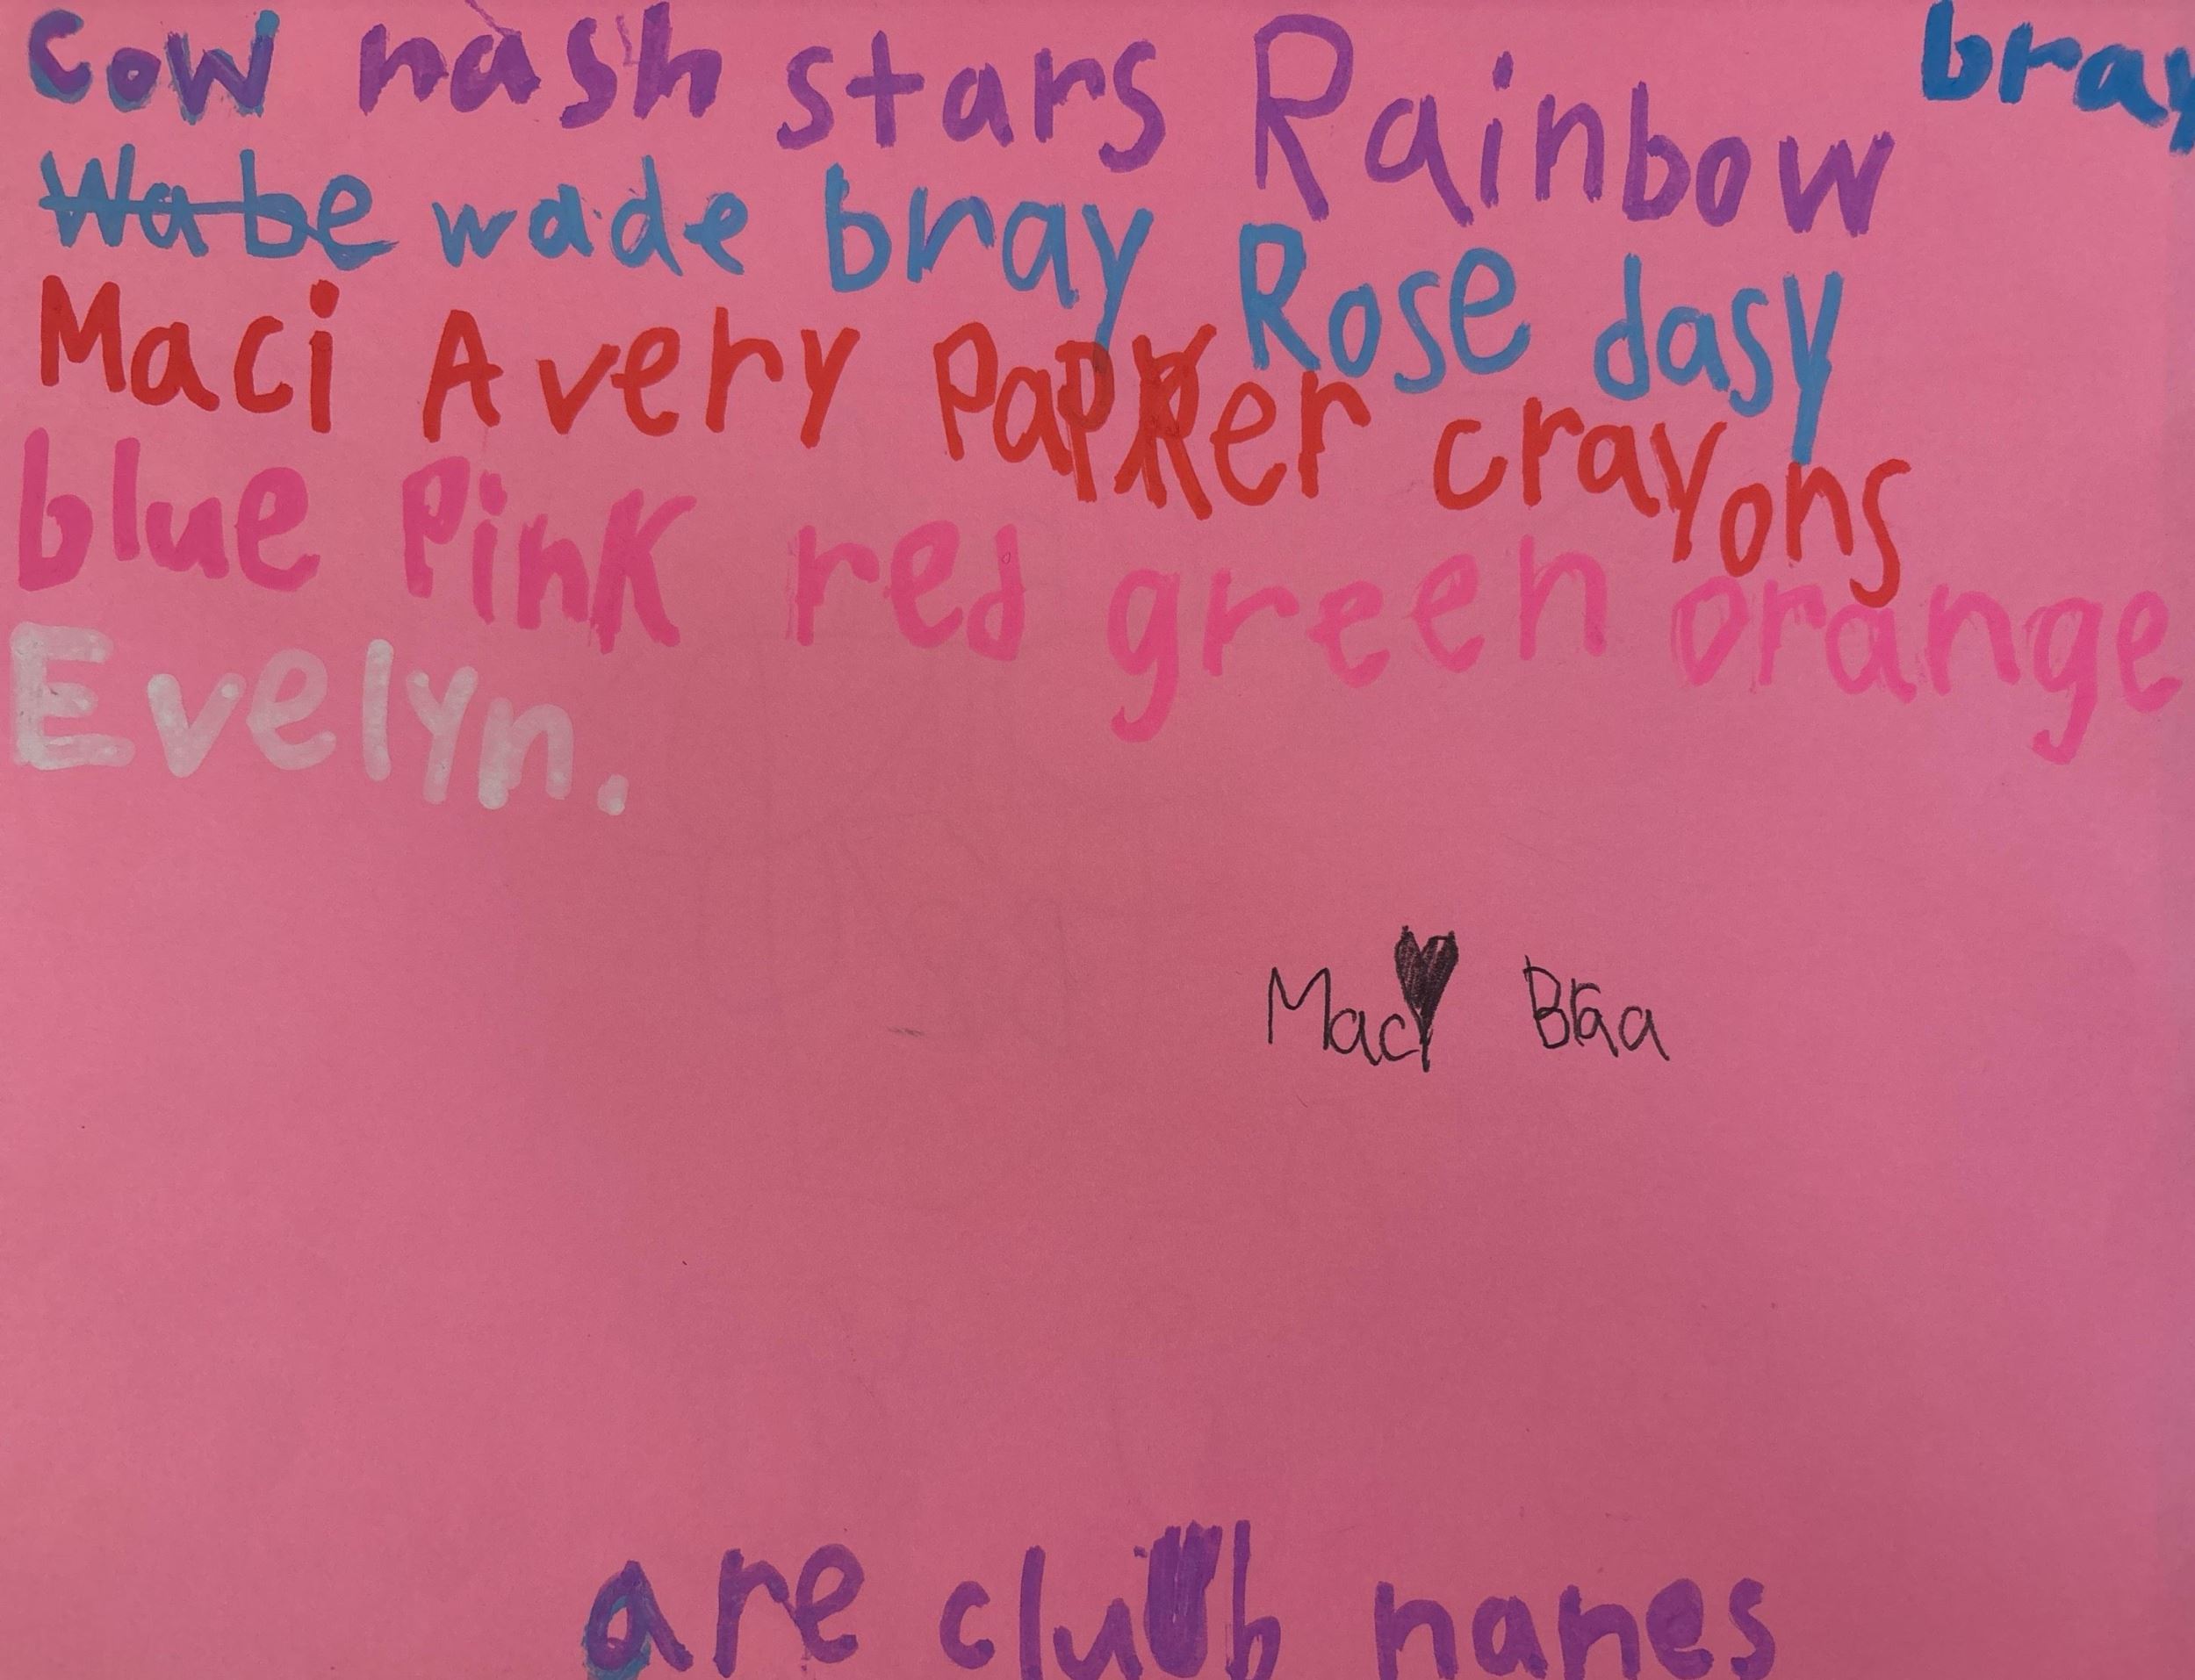 cow nash stars Rainbow bray
Wabe wade bray Rose dasy
Maci Avery Papker crayons
blue Pink red green orange
Evelyn.
Maci Braa
are club nanes